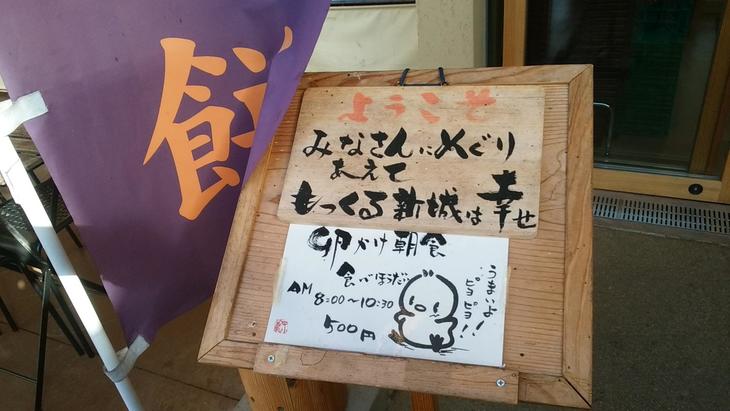 餅
ようこそ
みなさんにめぐり
あえて
もっくる新城は幸せ
卵かけ朝食
食べほうだい
AM 8:00～10:30
500円
うまいよ!
ピヨピヨ!